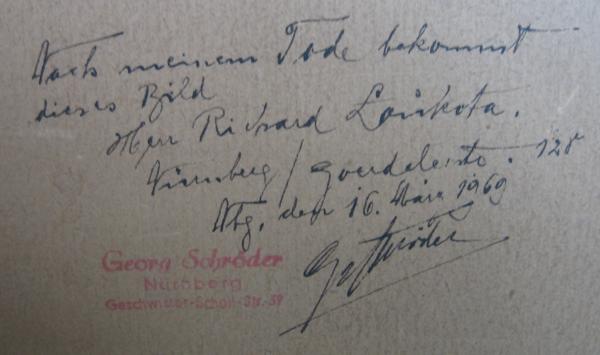 Nach meinem Tode bekommt
dieses Bild
Herr Richard Loukota.
Nürnberg / Goerdelerstr. 128
Nbg, den 16. März 1969
GSchröder
Georg Schröder
Nürnberg
Geschwister-Scholl-Str.-39